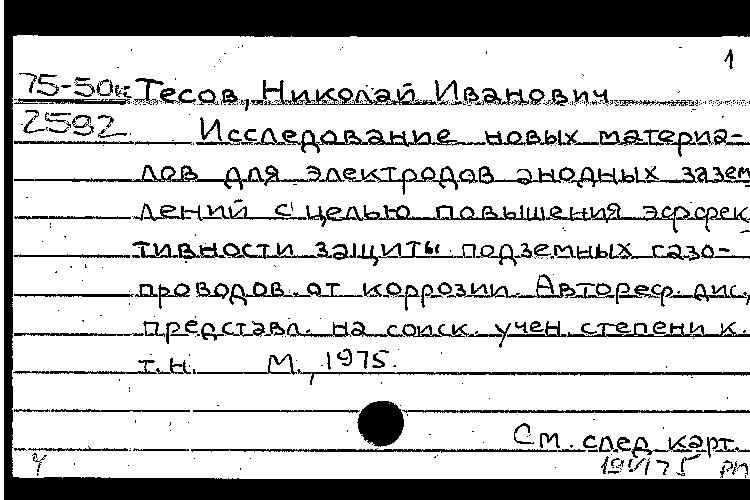 1
75-50к Тесов, Николай Иванович
2592 Исследование новых материа-
лов для электродов анодных зазем
лений с целью повышения эффек
тивности защиты подземных газо-
проводов от коррозии. Автореф. дис,
представл. на соиск. учен. степени к.
т.н. М., 1975.
См. след карт.